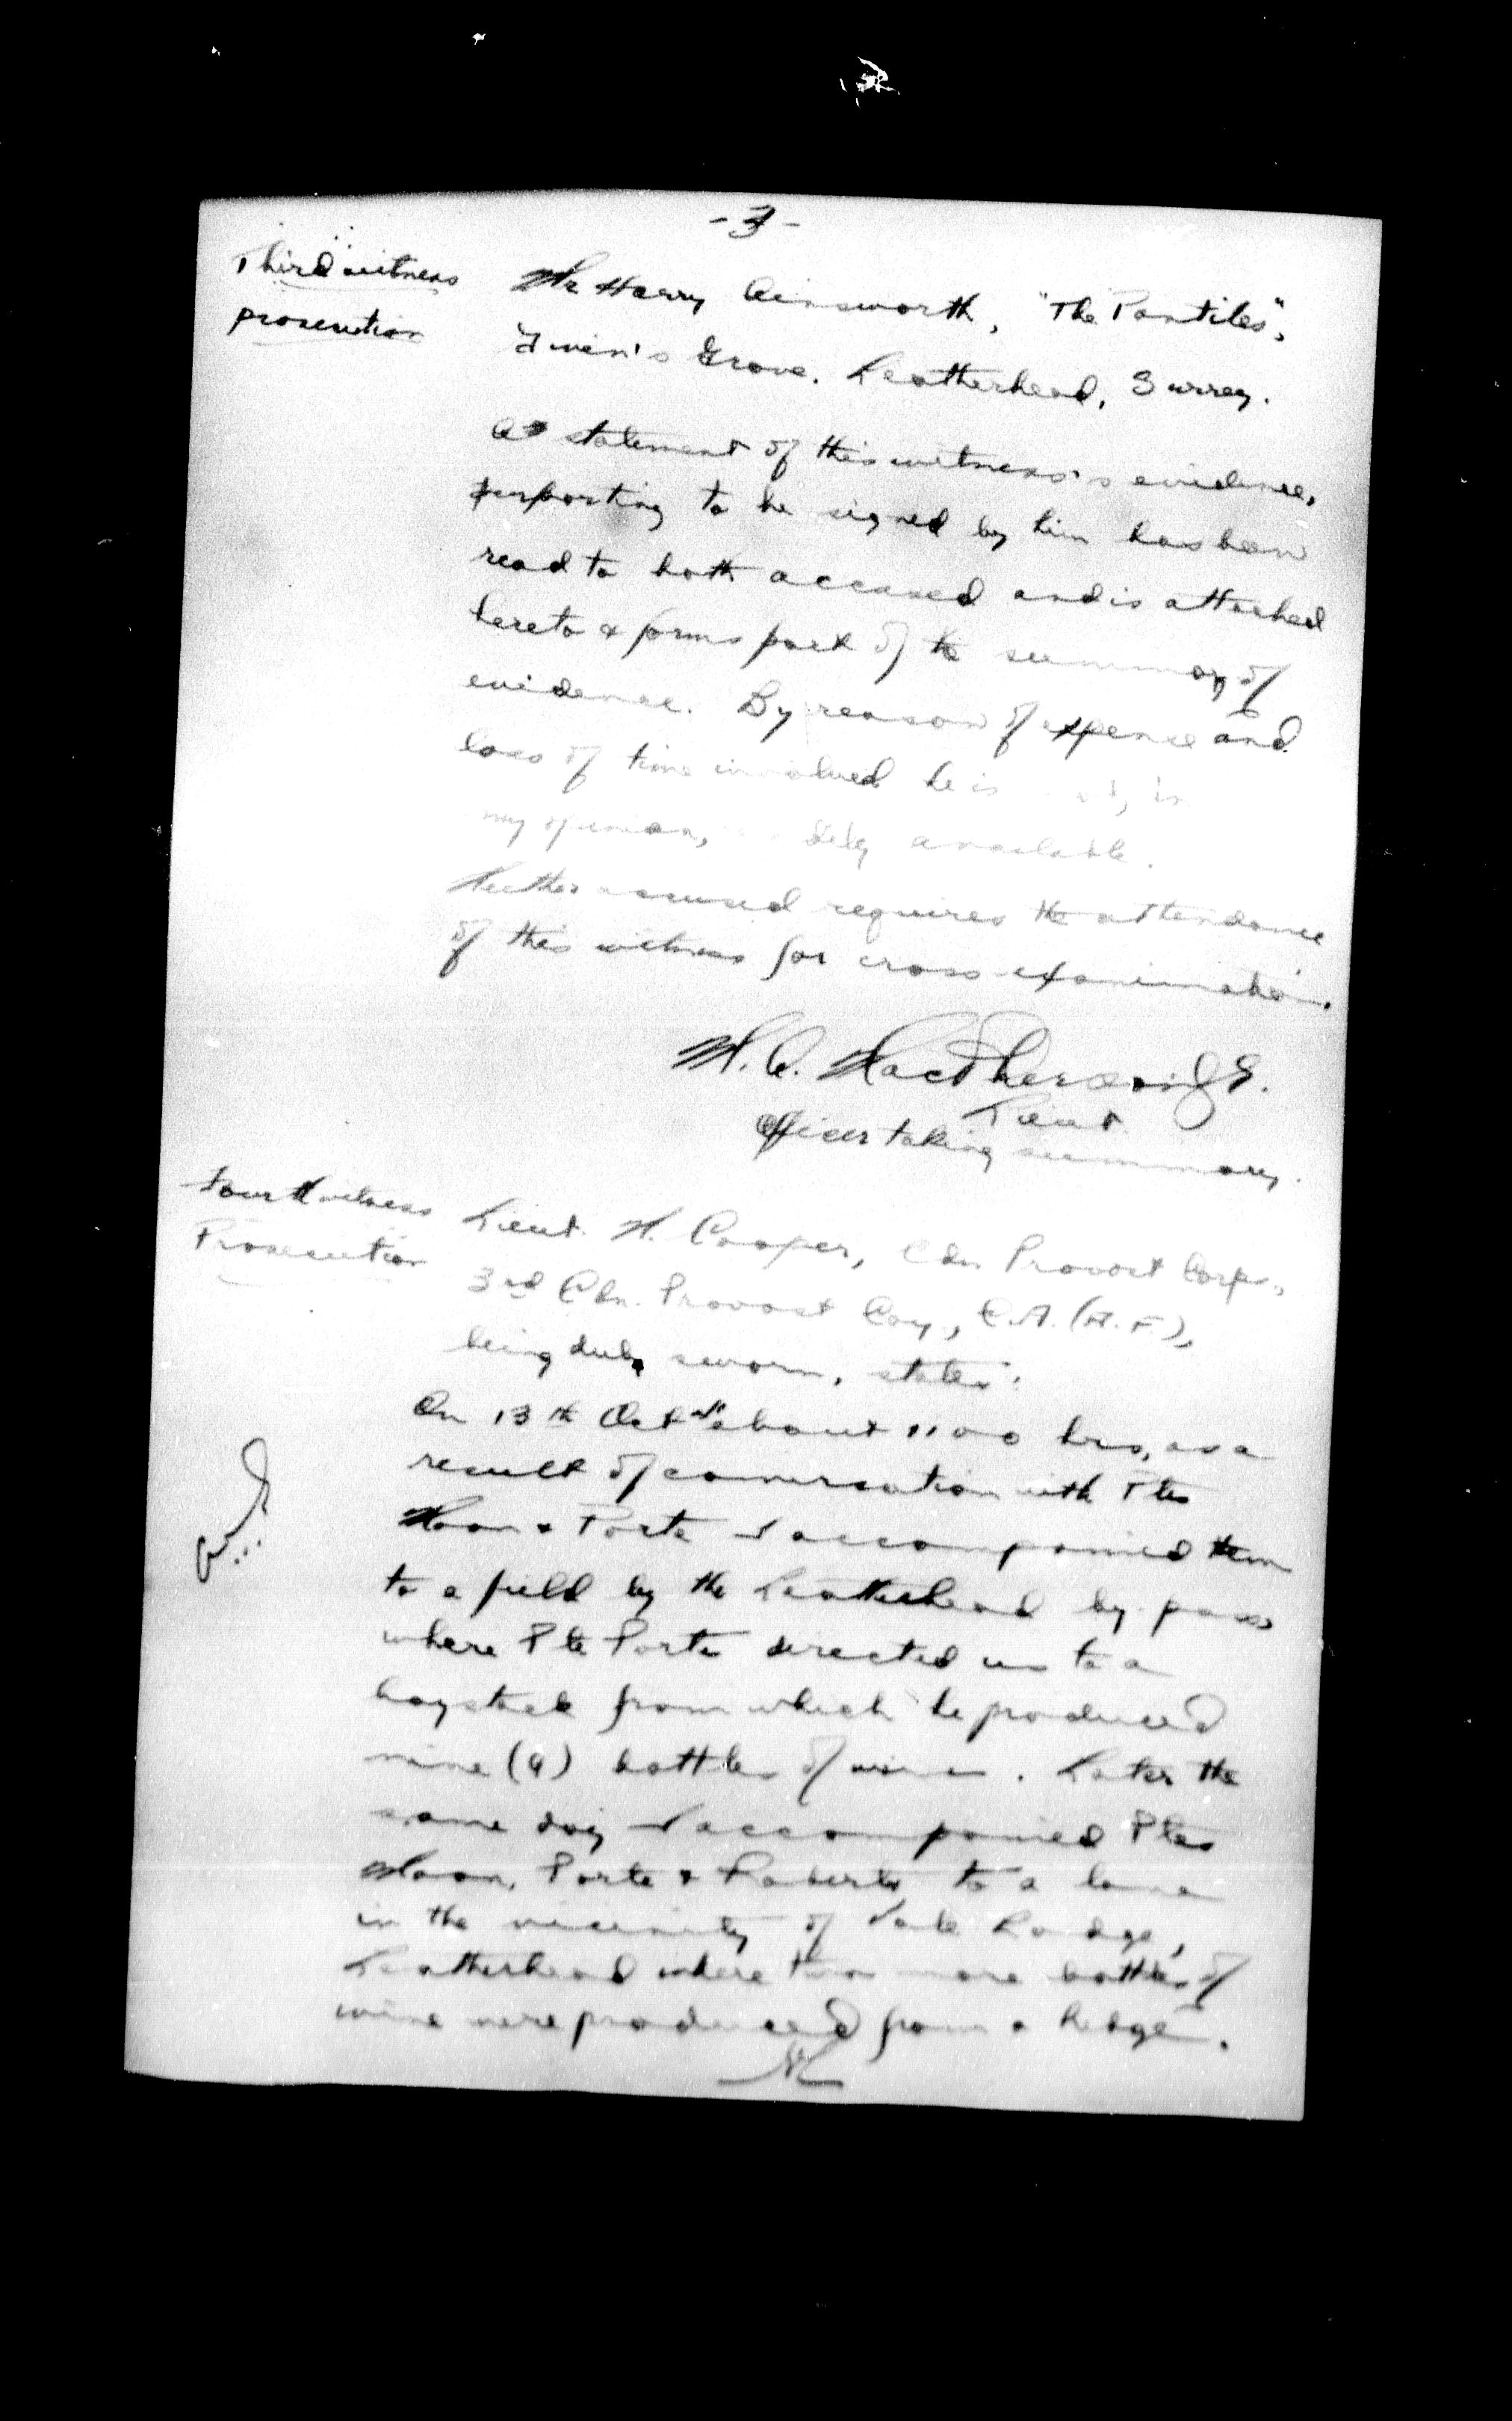 -3-
Third witness
prosecution
Mr Harry Ainsworth, "The Pantiles",
Grove. Leatherhead, Surrey.
A statement of this witness's evidence,
purporting to be signed by him has been
read to both accused and is attached
hereto & forms part of the summary of
evidence. By reason of expense and
loss of time involved he is not, in
my opinion, available.
Neither accused requires the attendance
of this witness for cross-examination.
Lieut.
Officer taking summary.
Fourth witness
Prosecution
Lieut. H. Cooper, Cdn Provost Corps,
3rd Cdn. Provost Coy, C.A. (A.F.),
being duly sworn, states:
On 13th Oct about 1100 hrs, as a
result of conversation with Ptes
& Porte I accompanied them
to a field by the Leatherhead by-pass
where Pte Porte directed us to a
haystack from which he produced
nine (9) bottles of wine. Later the
same day I accompanied Ptes
Porte & Roberts to a lane
in the vicinity of Lodge,
Leatherhead where two more bottles of
wine were produced from a hedge.